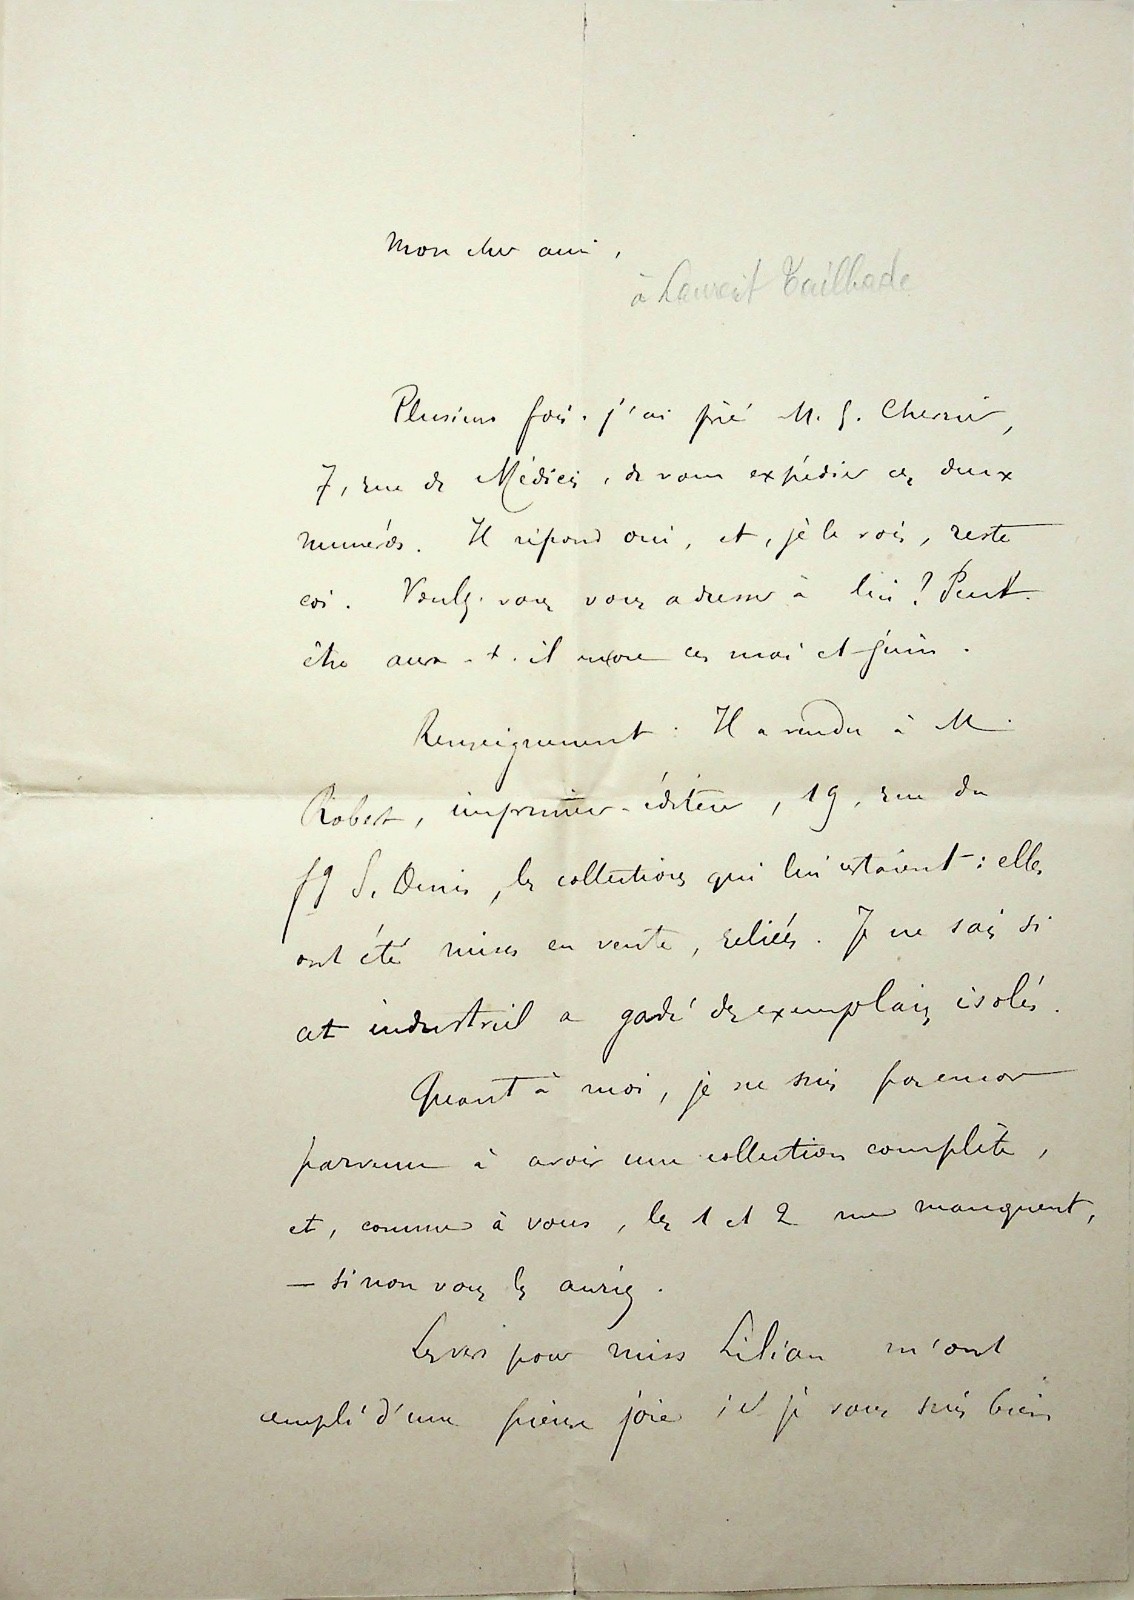 Mon cher ami,
à Laurent Tailhade
Plusieurs fois j'ai prié M. G. Chevrier,
7, rue de Médicis, de vous expédier ces deux
numéros. Il répond oui, et, je le vois, reste
coi. Voulez-vous vous adresser à lui ? Peut-
être aura-t-il encore ces mai et juin.
Renseignement : Il a vendu à M.
Robert, imprimeur-éditeur, 19, rue du
fg S. Denis, les collections qui lui restaient : elles
ont été mises en vente, reliées. Je ne sais si
cet industriel a gardé des exemplaires isolés.
Quant à moi, je ne suis pas encor
parvenu à avoir une collection complète,
et, comme à vous, les 1 et 2 me manquent,
— sinon vous les auriez.
Les vers pour miss Lilian m'ont
empli d'une pieuse joie ; et je vous suis bien